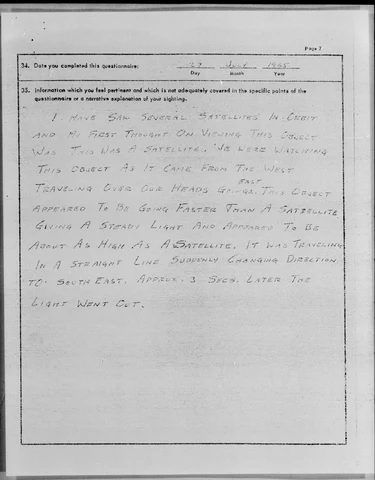 Page 7
34. Date you completed this questionnaire: 27 July 1965
Day Month Year
35. Information which you feel pertinent and which is not adequately covered in the specific points of the
questionnaire or a narrative explanation of your sighting.
I HAVE SAW SEVERAL SATELLITES IN ORBIT
AND MY FIRST THOUGHT ON VIEWING THIS OBJECT
WAS THIS WAS A SATELLITE. WE WERE WATCHING
THIS OBJECT AS IT CAME FROM THE WEST
EAST
TRAVELING OVER OUR HEADS GOING. THIS OBJECT
APPEARED TO BE GOING FASTER THAN A SATELLITE
GIVING A STEADY LIGHT AND APPEARED TO BE
ABOUT AS HIGH AS A SATELLITE. IT WAS TRAVELING
IN A STRAIGHT LINE SUDDENLY CHANGING DIRECTION
TO SOUTH EAST. APPROX. 3 SECS. LATER THE
LIGHT WENT OUT.